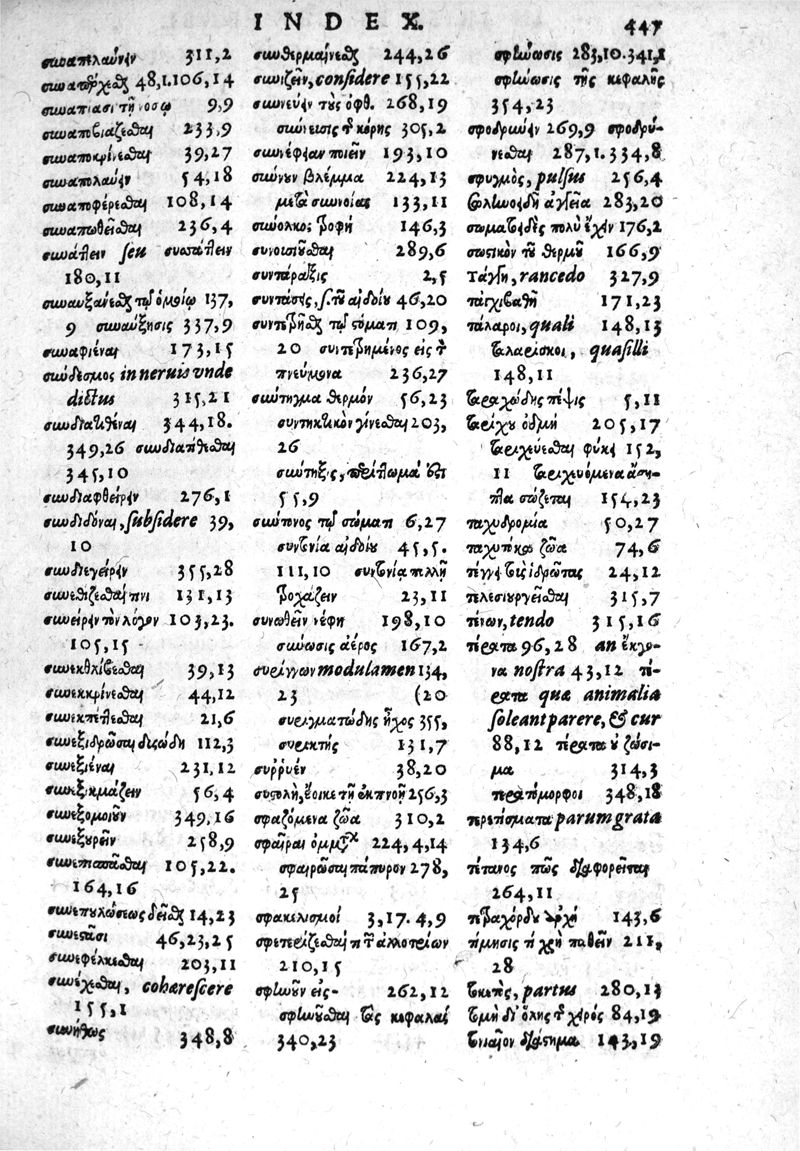 INDEX. 447
συναπελαύνειν 311,2
συναπέρχεσθαι 48,1.106,14
συναπιᾶσι τῇ νόσῳ 9,9
συναποβιάζεσθαι 233,9
συναποκρίνεσθαι 39,27
συναπολαύειν 54,18
συναποφέρεσθαι 108,14
συναπωθεῖσθαι 236,4
συνάπτειν seu συναάπτειν
180,11
συναυξάνεσθαι τῷ ὁμοίῳ 137,
9 συναύξησις 337,9
συναφιέναι 173,15
σύνδεσμος in neruis vnde
dictus 315,21
συνδιατιθέναι 344,18.
349,26 συνδιατίθεσθαι
345,10
συνδιαφθείρειν 276,1
συνδιδόναι, subsidere 39,
10
συνδιεγείρειν 355,28
συνεθίζεσθαι τινι 131,13
συνείρειν τὸν λόγον 103,23.
105,15
συνεκθλίβεσθαι 39,13
συνεκκρίνεσθαι 44,12
συνεκπέττεσθαι 21,6
συνεξιδρῶσαι 112,3
συνεξιέναι 231,12
συνεξικμάζειν 56,4
συνεξομοιοῦν 349,16
συνεξουρεῖν 258,9
συνεπισπᾶσθαι 105,22.
164,16
συνεπουλώσεως δεῖσθαι 14,23
συνεστῶσι 46,23,25
συνεφέλκεσθαι 203,11
συνέχεσθαι, cohærescere
155,1
συνήθως 348,8
συνθερμαίνεσθαι 244,26
συνιζεῖν, considere 155,22
συννεύειν τοὺς ὀφθ. 268,19
σύννευσις τ κόρης 305,2
συννέφειαν ποιεῖν 193,10
σύννουν βλέμμα 224,13
μετὰ συννοίας 133,11
σύνολκος τροφή 146,3
συνοισιοῦσθαι 289,6
συντάραξις 2,5
συντάσεις, ſ. τοῦ αἰδοίου 46,20
συντετρῆσθαι τῷ στόματι 109,
20 συντετρημένος εἰς τ
πνεύμονα 236,27
σύντηγμα θερμόν 56,23
συντηκτικὸν γίνεσθαι 203,
26
σύντηξις, περίττωμά ἐστι
55,9
σύντονος τῷ σώματι 6,27
συντονία αἰδοίου 45,5.
111,10 συντονία πολλῇ
τροχάζειν 23,11
συνωθεῖν νέφη 198,10
σύνωσις ἀέρος 167,2
συρίγγων modulamen 134,
23 (20
συριγματώδης ἦχος 355,
συρικτής 131,7
συῤῥυέν 38,20
συστολὴ, ἔοικε τῇ ἐκπνοῇ 256,3
σφαζόμενα ζῶα 310,2
σφαῖραι ὀμμάτων 224,4,14
σφαιρῶσαι πάπυρον 278,
25
σφακελισμοί 3,17.4,9
σφετερίζεσθαι τι τ ἀλλοτρίων
210,15
σφηνοῦν εἰς- 262,12
σφηνοῦσθαι τὰς κεφαλὰς
340,23
σφήνωσις 283,10.341,1
σφήνωσις τῆς κεφαλῆς
354,23
σφοδρύνειν 269,9 σφοδρύ-
νεσθαι 287,1.334,8
σφυγμὸς, pulsus 256,4
σωληνοειδῆ ἀγγεῖα 283,20
σωματῶδες πολὺ ἔχειν 176,2
σωστικὸν τοῦ θερμοῦ 166,9
Τάγγη, rancedo 327,9
171,23
τάλαροι, quali 148,13
ταλαρίσκοι, quasilli
148,11
ταραχώδης πέψις 5,11
ταρίχου ὀδμή 205,17
ταριχεύεσθαι φύκει 152,
11 ταριχευόμενα ἄση-
πτα σώζεται 154,23
ταχυδρομία 50,27
ταχυτόκα ζῶα 74,6
τέγγει τοὺς ἱδρῶτας 24,12
τελεσιουργεῖσθαι 315,7
τείνων, tendo 315,16
τέρατα 96,28 an ἔκγο-
να nostra 43,12 τέ-
ρατα quæ animalia
soleant parere, & cur
88,12 τέρατα οὐ ζώσι-
μα 314,3
τερατόμορφοι 348,18
τερετίσματα parum grata
134,6
τίτανος πῶς διαφορεῖται
264,11
τετραχόρδου ἀρχή 143,6
τίμησις τί χρὴ παθεῖν 211,
28
τοκετὸς, partus 280,13
τομὴ δι' ὅλης τ χειρός 84,19
τονιαῖον διάστημα 143,19